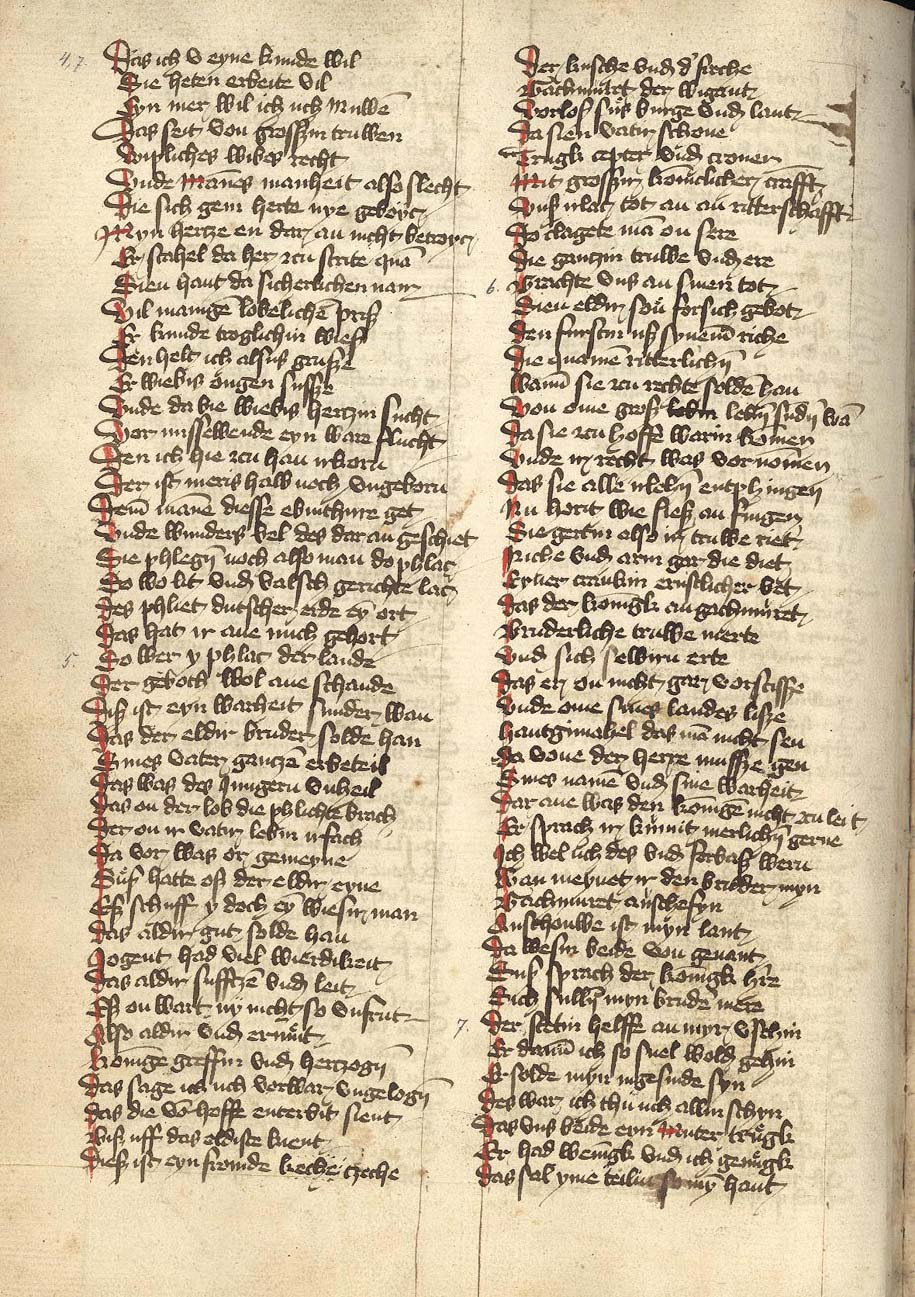 4,7.
Das ich v eyne kunde wil
Die heten erbeite vil
Eyn mer wil ich uch nuwē
Das seit von grosszin truwen
wipliches wibes recht
Vnde manes manheit also slecht
Die sich gein herte nye geboyc
Myn hertze en dar an nicht betroyc
Er stahel da her zcu strite quā
Sien hant da sicherlichen nam
Vil mangē lobelichē priß
Er kunde troglichin wieß
Den helt ich alsus grusße
Er wiebis ougen susße
Vnde da bie wiebis hertzin sucht
Vor missewende eyn ware flucht
Den ich hie zcu han irkorn
Der ist meris halb noch vngeborn
Dem mane diesse ebinthure get
Vnde wunders vel des dar an geschiet
Sie phlegē noch also man do phlac
So wo lit vnd valsch gerichte lac
Des phliet dutscher erde ey ort
Das hat ir ane mich gehort
5.
So wer y phlac der lande
Der geboth wol ane schande
Diß ist eyn warheit sunder wan
Das der eldir bruder solde han
Sines vater gantzē erbeteil
Das was des Jungern vnheil
Das on der tob die phlichte brach
Der on ir vatir lebin irsach
Da vor was oͤr gemeyne
Suß hatte oß der eldir eyne
Eß schuff y doch ey wiesir man
Das aldir gut solde han
Jogent had viel wierdikeit
Das aldir sufftzē vnd leit
Eß on wart ny nicht so vnfrut
Also aldir vnd ermut
Konige greffin vnd hertzogē
Das sage ich uch vorwar vngelogē
Das die vō hoffe enterbit sient
Biß uff das eldiste kient
Dieß ist eyn fromde zceche
Der kusche vnd d' firche
Gachmuret der wigant
Vorloß suß burge vnd lant
Da sien vatir schone
Trugk cepter vnd cronen
Mit grosszir koniclicher crafft
Vnß man lac tot an an ritterschafft
Do clagete mā on sere
Die gantzin truwe vnd ere
6.
Brachte vns an sinen tot
Sien eldir son for sich gebot
Den furstin uß synem riche
Die quamē ritterlichē
Wann sie zcu rechte solde han
Von eme groß lebē sundir wā
Da sie zcu hoffe warin komen
Vnde ir recht was vornomen
Das sie alle irlehē entphingen
Nu horit wie sieß an fingen
Sie gertin also ir truwe riet
Riche vnd arm gar die diet
Eyner crankin ernstlicher bet
Das der konigk an gachmuret
Bruderliche truwe merte
Vnd sich selbirn erte
Das er on nicht gar vorstisße
Vnde ome sines landes lisße
Hantgimahel das mā nicht sen
Da vone der herre musße gen
Sines namē vnd sine warheit
Dar ane was den konigē nicht zcu leit
Er sprach ir kunnit merlichē gerne
Ich wel uch des vnd forbaß wern
Wan meynet ir den bruder myn
Gachmuret anschefyn
Anschouwe ist myn lant
Da wesin beide von genant
Suß sprach der konigk here
Sich sullē myn brude' mere
7.
Der stetin helffe an myr vsehin
Er dann ich so snel wold gehin
Er solde myn ingesinde syn
Des war ich thu uch allin schyn
Das vns beide eyn muter trugk
Er had wenigk vnd ich genugk
Das sal yme teilin so mȳ hant